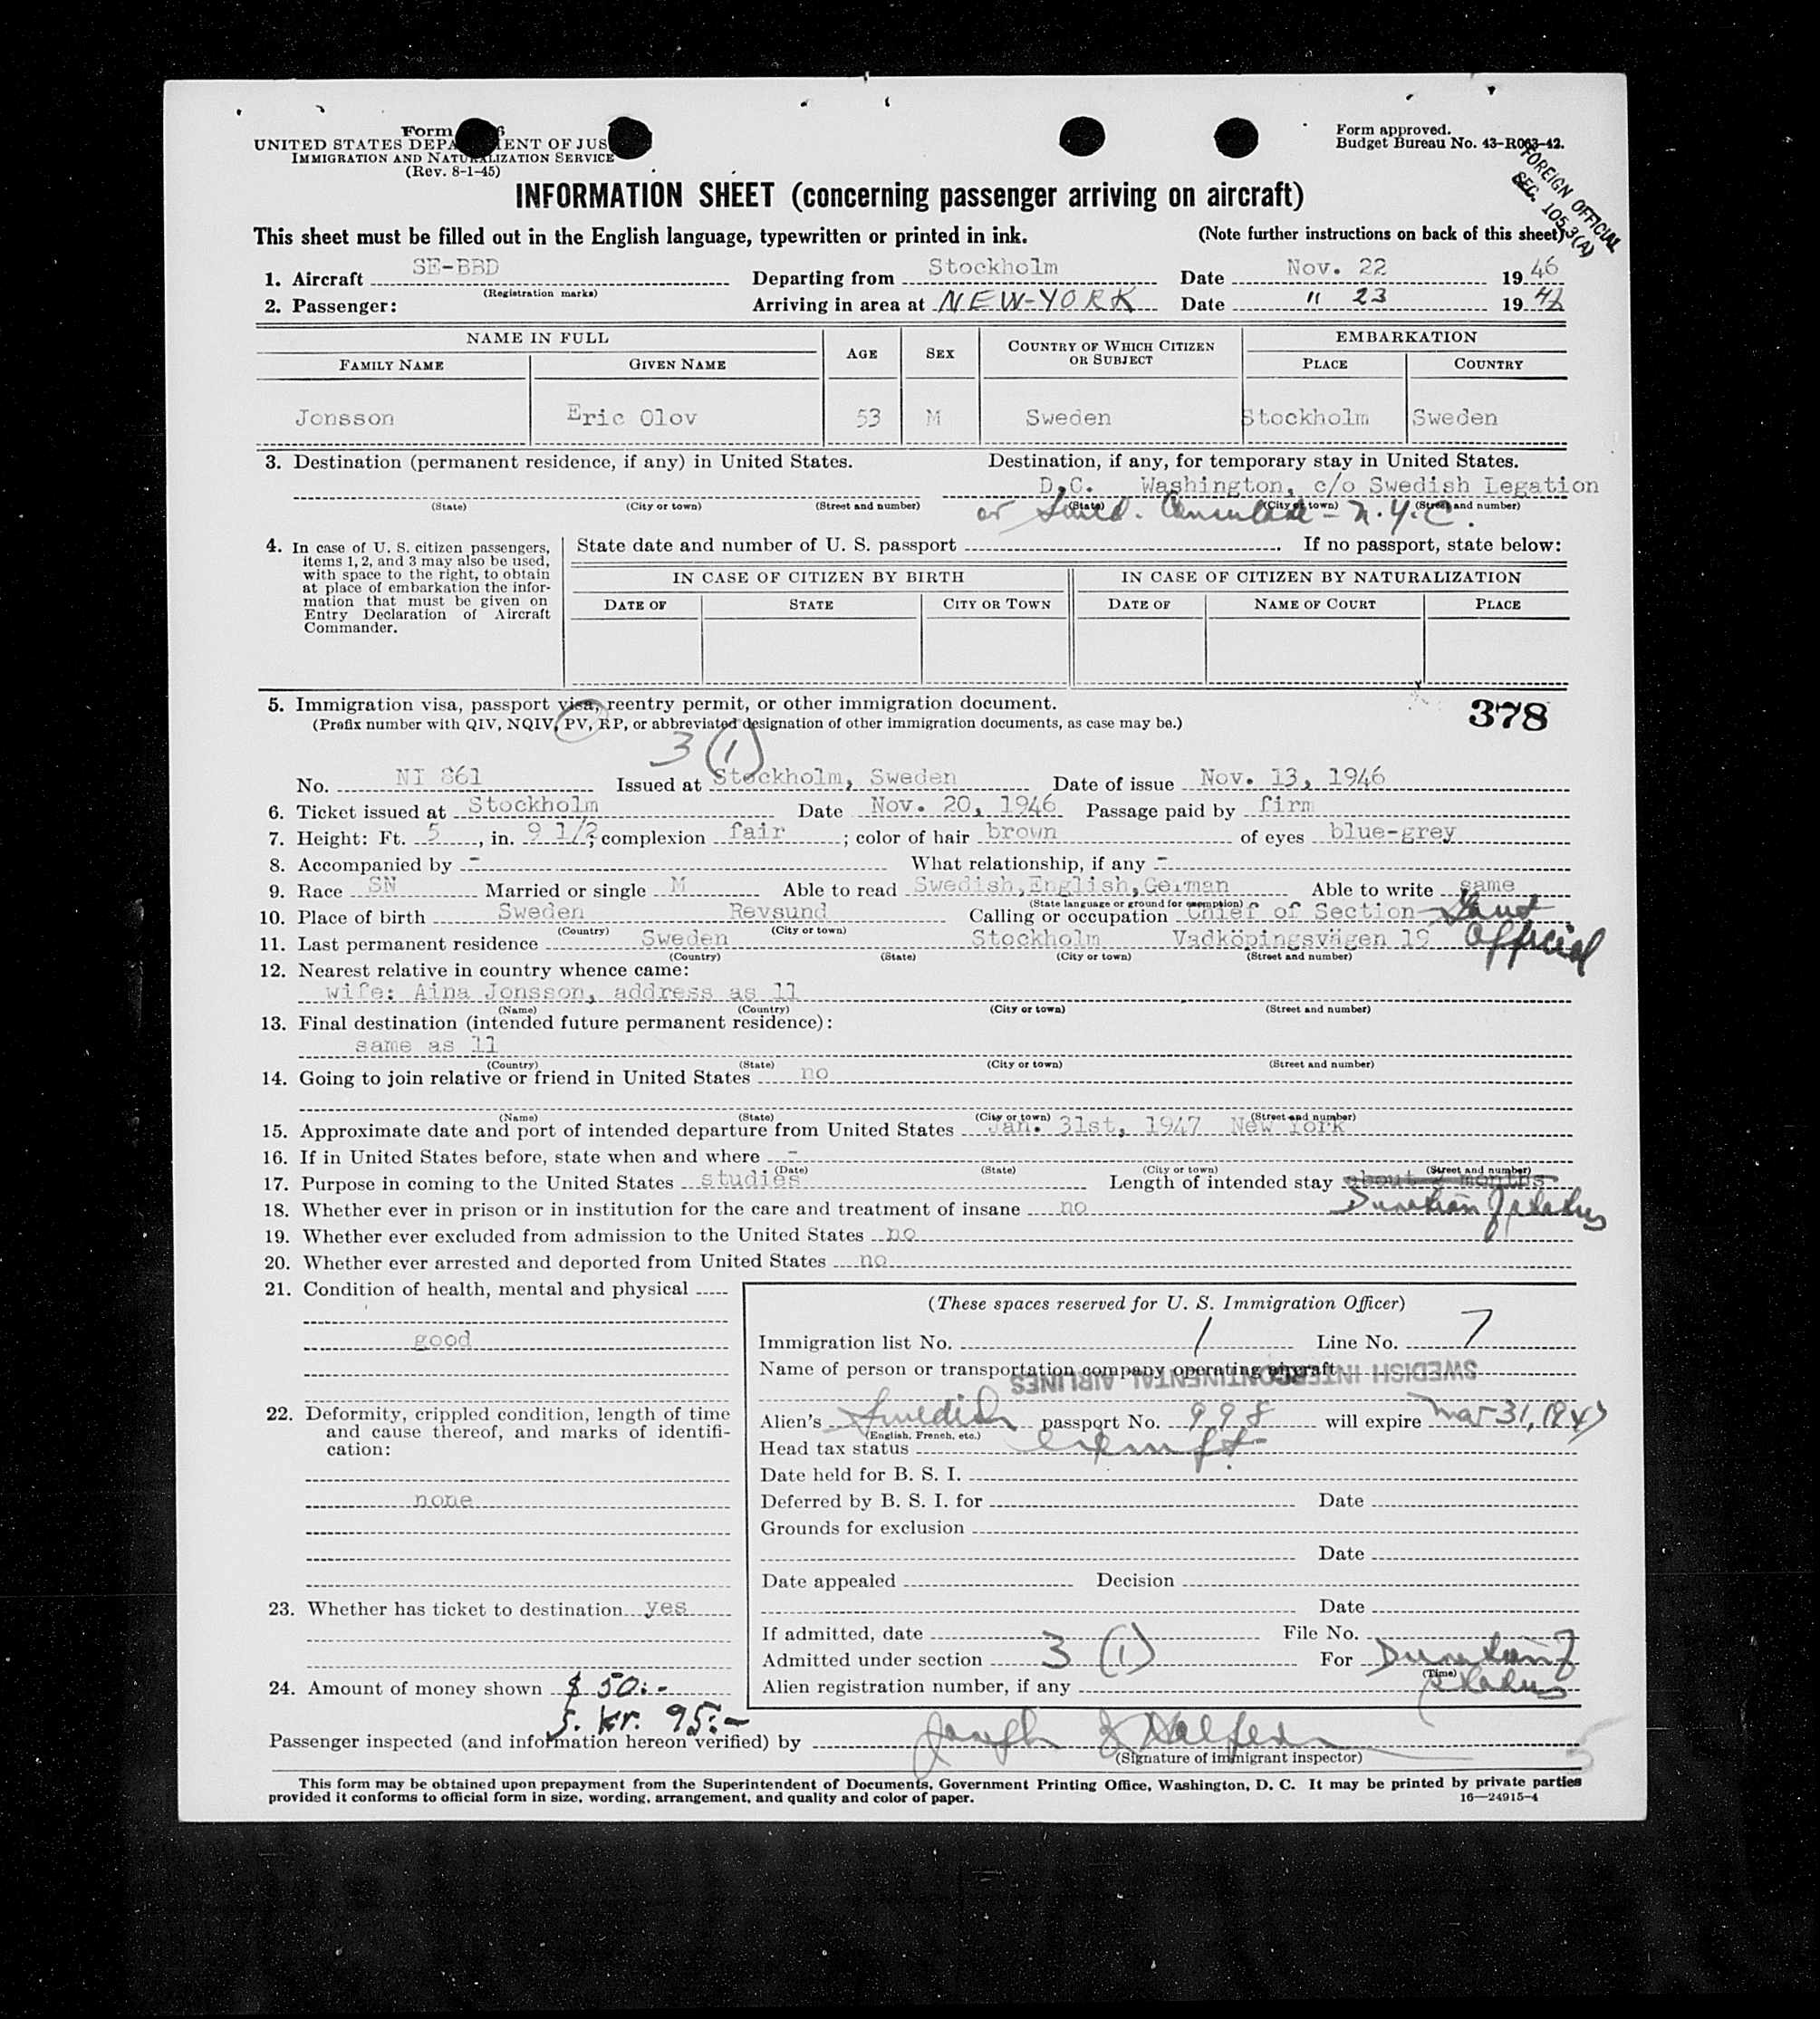 Form 6
UNITED STATES DEPA ENT OF JUS
IMMIGRATION AND NATURALIZATION SERVICE
(Rev. 8-1-45)
Form approved.
Budget Bureau No. 43-R063-42.
FOREIGN OFFICIAL
SEC. 105.3(A)
INFORMATION SHEET (concerning passenger arriving on aircraft)
This sheet must be filled out in the English language, typewritten or printed in ink.
(Note further instructions on back of this sheet)
1. Aircraft SE-BBD Departing from Stockholm Date Nov. 22 1946
(Registration marks)
2. Passenger: Arriving in area at NEW-YORK Date " 23 1946
NAME IN FULL AGE SEX COUNTRY OF WHICH CITIZEN OR SUBJECT EMBARKATION
FAMILY NAME GIVEN NAME PLACE COUNTRY
Jonsson Eric Olov 53 M Sweden Stockholm Sweden
3. Destination (permanent residence, if any) in United States. Destination, if any, for temporary stay in United States.
D.C. Washington, c/o Swedish Legation
(State) (City or town) (Street and number) (State) (City or town) (Street and number)
or Swed. Consulate - N.Y.C.
4. In case of U. S. citizen passengers,
items 1, 2, and 3 may also be used,
with space to the right, to obtain
at place of embarkation the infor-
mation that must be given on
Entry Declaration of Aircraft
Commander.
State date and number of U. S. passport . If no passport, state below:
IN CASE OF CITIZEN BY BIRTH IN CASE OF CITIZEN BY NATURALIZATION
DATE OF STATE CITY OR TOWN DATE OF NAME OF COURT PLACE
5. Immigration visa, passport visa, reentry permit, or other immigration document.
(Prefix number with QIV, NQIV, PV, RP, or abbreviated designation of other immigration documents, as case may be.)
378
3 (1)
No. NI 861 Issued at Stockholm, Sweden Date of issue Nov. 13, 1946
6. Ticket issued at Stockholm Date Nov. 20, 1946 Passage paid by firm
7. Height: Ft. 5, in. 9 1/2; complexion fair; color of hair brown of eyes blue-grey
8. Accompanied by - What relationship, if any -
9. Race SN Married or single M Able to read Swedish, English, German Able to write same
(State language or ground for exemption)
10. Place of birth Sweden Revsund Calling or occupation Chief of Section - Govt
(Country) (City or town)
Official
11. Last permanent residence Sweden Stockholm Vadköpingsvägen 19
(Country) (State) (City or town) (Street and number)
12. Nearest relative in country whence came:
wife: Aina Jonsson, address as 11
(Name) (Country) (City or town) (Street and number)
13. Final destination (intended future permanent residence):
same as 11
(Country) (State) (City or town) (Street and number)
14. Going to join relative or friend in United States no
(Name) (State) (City or town) (Street and number)
15. Approximate date and port of intended departure from United States Jan. 31st, 1947 New York
16. If in United States before, state when and where -
(Date) (State) (City or town) (Street and number)
17. Purpose in coming to the United States studies Length of intended stay about 2 months
Duration of status
18. Whether ever in prison or in institution for the care and treatment of insane no
19. Whether ever excluded from admission to the United States no
20. Whether ever arrested and deported from United States no
21. Condition of health, mental and physical
good
22. Deformity, crippled condition, length of time
and cause thereof, and marks of identifi-
cation:
none
23. Whether has ticket to destination yes
24. Amount of money shown $ 50:-
S. kr. 95:-
(These spaces reserved for U. S. Immigration Officer)
Immigration list No. 1 Line No. 7
Name of person or transportation company operating aircraft
SWEDISH INTERCONTINENTAL AIRLINES
Alien's Swedish passport No. 998 will expire Mar 31, 1947
(English, French, etc.)
Head tax status exempt
Date held for B. S. I.
Deferred by B. S. I. for Date
Grounds for exclusion
Date
Date appealed Decision
Date
If admitted, date File No.
Admitted under section 3 (1) For Duration of
(Time)
status
Alien registration number, if any
Passenger inspected (and information hereon verified) by Joseph Halpern
(Signature of immigrant inspector)
This form may be obtained upon prepayment from the Superintendent of Documents, Government Printing Office, Washington, D. C. It may be printed by private parties
provided it conforms to official form in size, wording, arrangement, and quality and color of paper.
16—24915-4